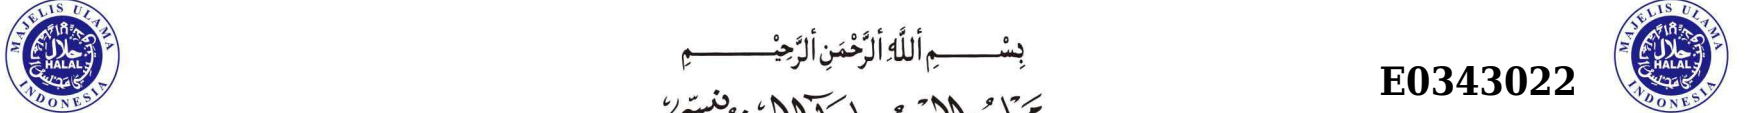 MAJELIS ULAMA INDONESIA
حلال
HALAL
بِسْــــــمِ أللَّهِ ألرَّحْمَنِ ألرَّحِيْــــــمِ
E0343022
MAJELIS ULAMA INDONESIA
حلال
HALAL